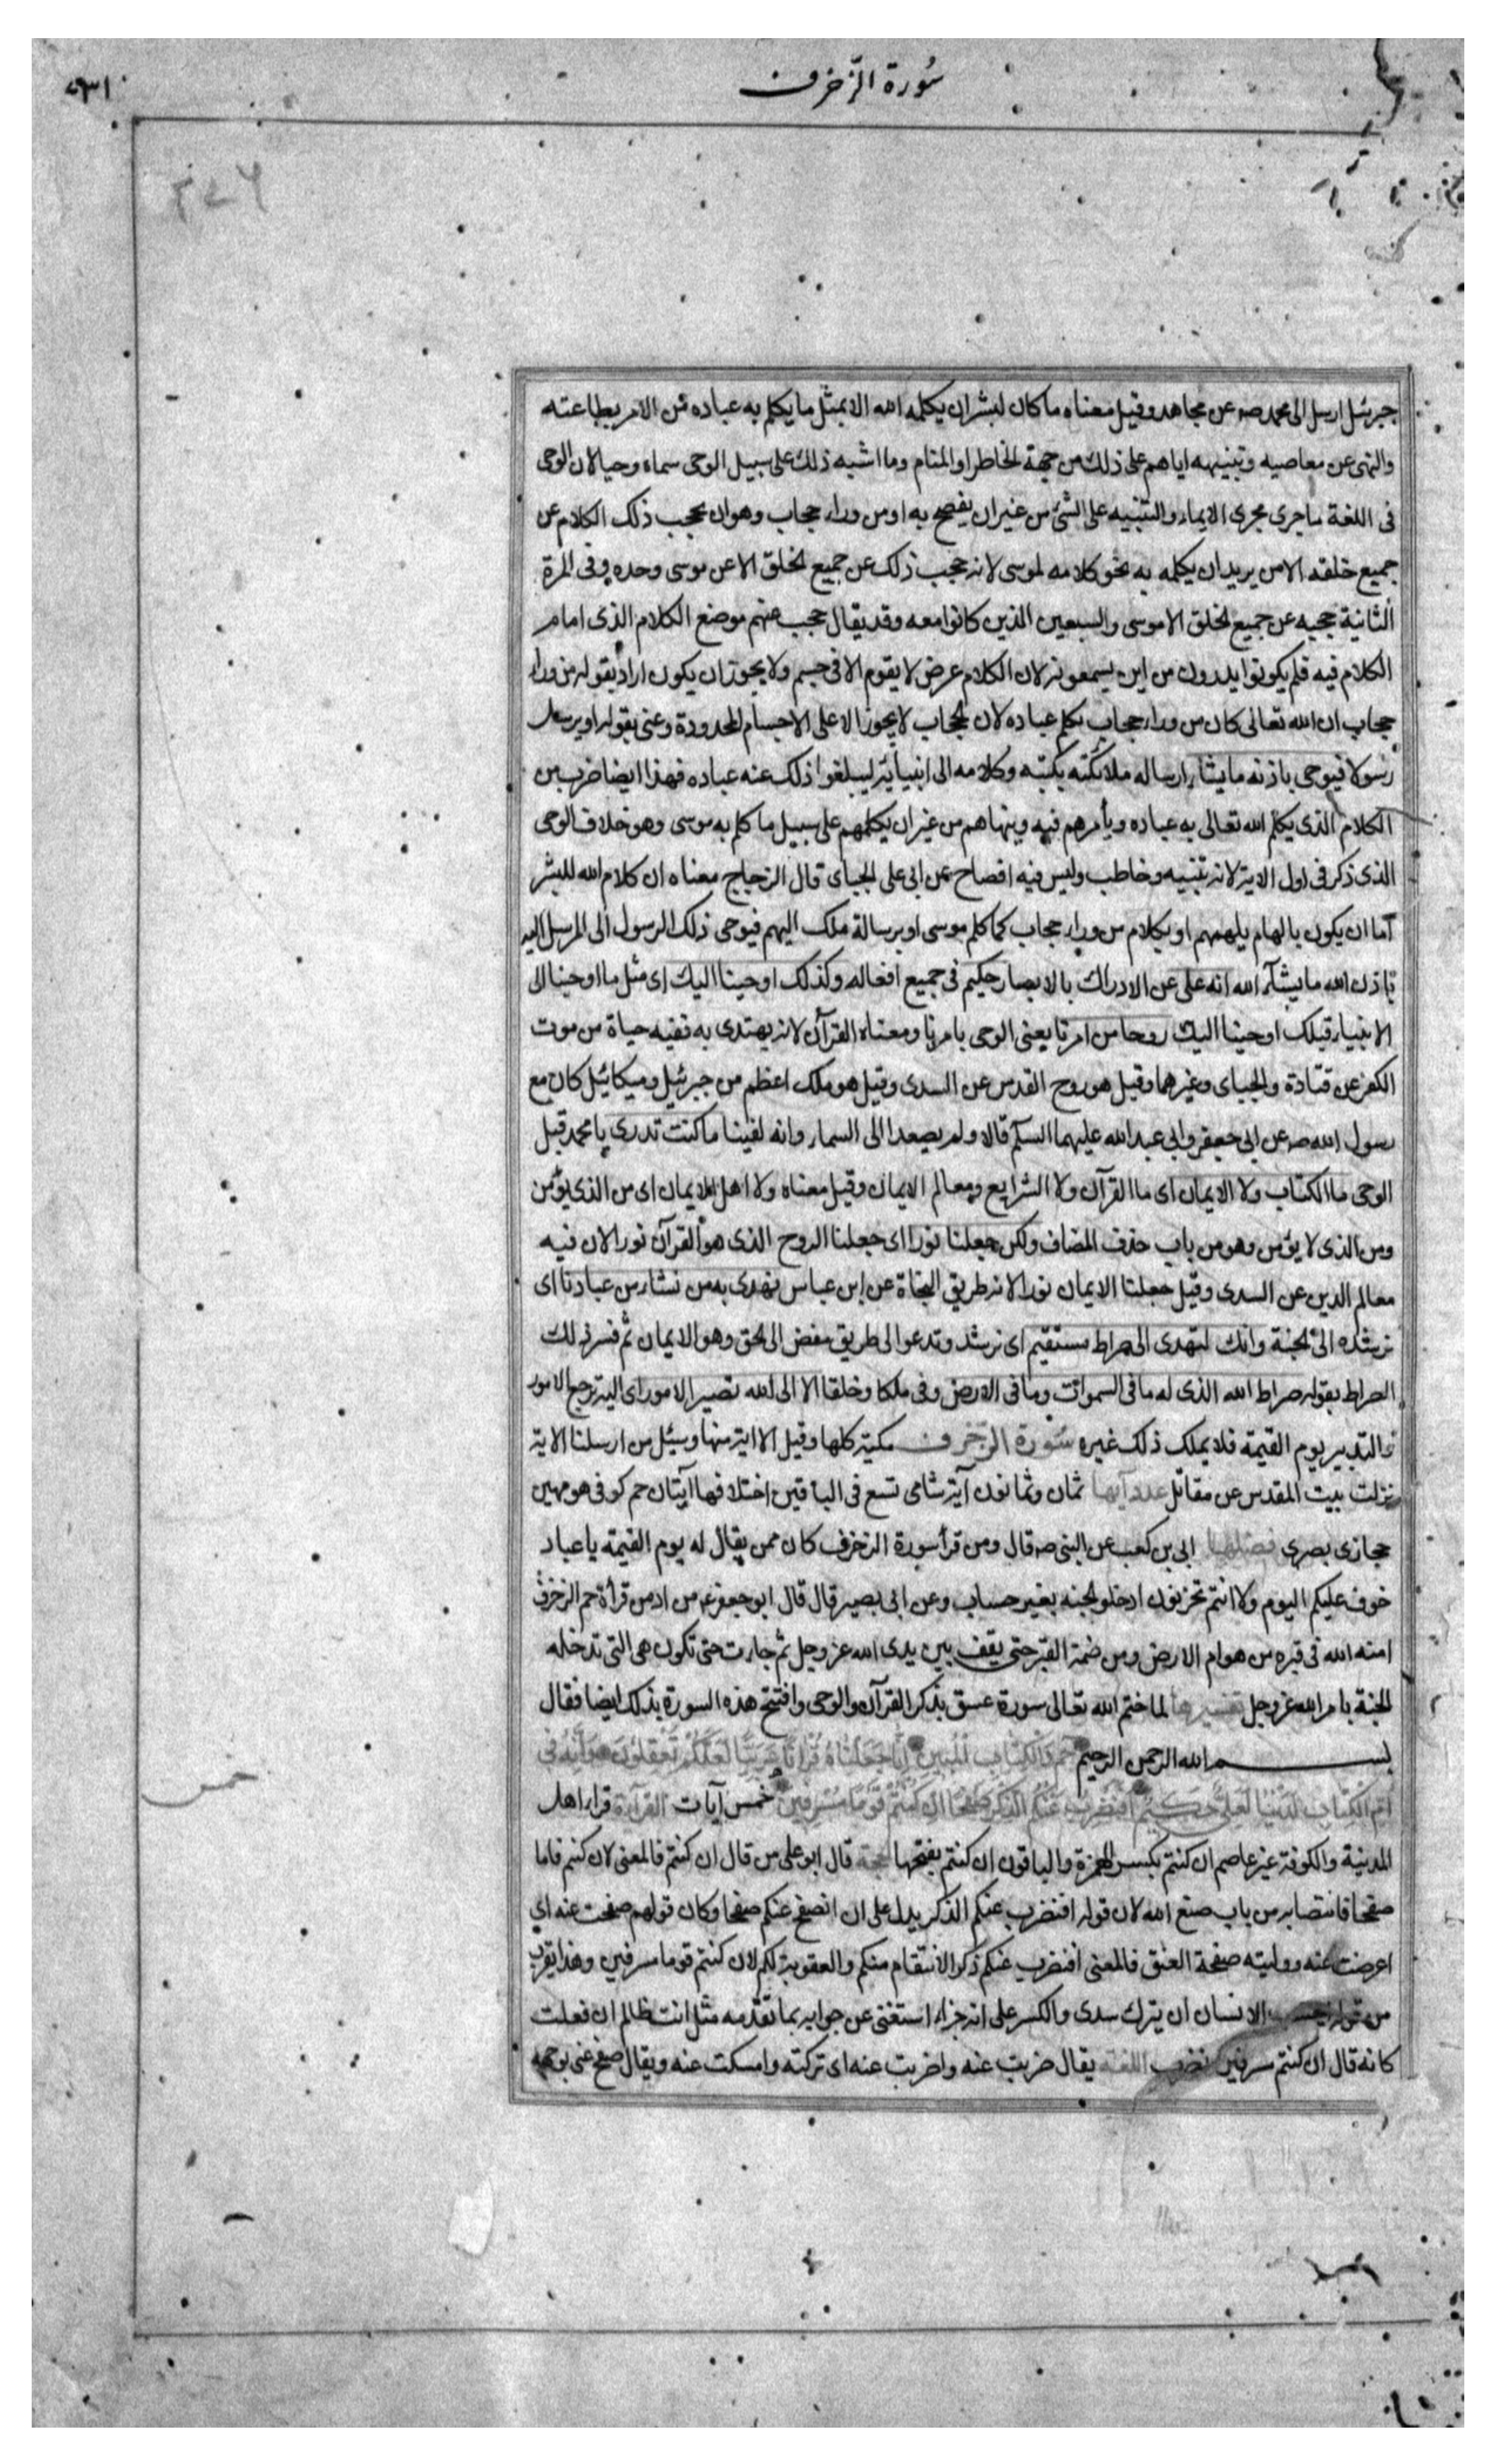 سُورة الزّخرف
جبرئيل ارسل الى محمد صه عن مجاهد وقيل معناه ما كان لبشر ان يكلمه الله الا بمثل ما يكلم به عباده من الامر بطاعته
والنهى عن معاصيه وتنبيهه اياهم على ذلك من جهة الخاطر او المنام وما اشبه ذلك على سبيل الوحى سماه وحيا لان الوحى
فى اللغة ما جرى مجرى الايماء والتنبيه على الشئ من غير ان يفصح به او من وراء حجاب وهو ان يحجب ذلك الكلام عن
جميع خلقه الا من يريد ان يكلمه به نحو كلامه لموسى لانه حجب ذلك عن جميع الخلق الا عن موسى وحده وفى المرة
الثانية حجبه عن جميع الخلق الا موسى والسبعين الذين كانوا معه وقد يقال حجب عنهم موضع الكلام الذى اقام
الكلام فيه فلم يكونوا يدرون من اين يسمعونه لان الكلام عرض لا يقوم الا فى جسم ولا يجوز ان يكون اراد بقوله من وراء
حجاب ان الله تعالى كان من وراء حجاب يكلم عباده لان الحجاب لا يجوز الا على الاجسام المحدودة وعنى بقوله او يرسل
رسولا فيوحى باذنه ما يشاء ارساله ملائكته بكتبه وكلامه الى انبيائه ليبلغوا ذلك عنه عباده فهذا ايضا ضرب من
الكلام الذى يكلم الله تعالى به عباده ويأمرهم فيه وينهاهم من غير ان يكلمهم على سبيل ما كلم به موسى وهو خلاف الوحى
الذى ذكر فى اول الاية لانه تنبيه وخاطب وليس فيه افصاح عن ابى على الجباى قال الزجاج معناه ان كلام الله للبشر
اما ان يكون بالهام يلهمهم او بكلام من وراء حجاب كما كلم موسى او برسالة ملك اليهم فيوحى ذلك الرسول الى المرسل اليه
باذن الله ما يشآء الله انه على عن الادراك بالابصار حكيم فى جميع افعاله وكذلك اوحينا اليك اى مثل ما اوحينا الى
الانبياء قبلك اوحينا اليك روحا من امرنا يعنى الوحى بامرنا ومعناه القرآن لانه يهتدى به ففيه حياة من موت
الكفر عن قتادة والجباى وغيرهما وقيل هو روح القدس عن السدى وقيل هو ملك اعظم من جبرئيل وميكائيل كان مع
رسول الله صه عن ابى جعفر وابى عبد الله عليهما السلم قالا ولم يصعد الى السماء وانه لفينا ما كنت تدرى يا محمد قبل
الوحى ما الكتاب ولا الايمان اى ما القرآن ولا الشرايع ومعالم الايمان وقيل معناه ولا اهل الايمان اى من الذى يؤمن
ومن الذى لا يؤمن وهو من باب حذف المضاف ولكن جعلنا نورا اى جعلنا الروح الذى هو القرآن نورا لان فيه
معالم الدين عن السدى وقيل جعلنا الايمان نورا لانه طريق النجاة عن ابن عباس نهدى به من نشاء من عبادنا اى
نرشده الى الجنة وانك لتهدى الى صراط مستقيم اى ترشد وتدعو الى طريق مفض الى الحق وهو الايمان ثم فسر ذلك
الصراط بقوله صراط الله الذى له ما فى السموات وما فى الارض وفى ملكا وخلقا الا الى الله تصير الامور اى اليه ترجع الامور
والتدبير يوم القيمة فلا يملك ذلك غيره سُورة الزخرف مكية كلها وقيل الا اية منها وسئل من ارسلنا الاية
نزلت ببيت المقدس عن مقاتل عدد آيها ثمان وثمانون آية شامى تسع فى الباقين اختلافها آيتان حم كوفى هو مهين
حجازى بصرى فضلها ابى بن كعب عن النبى صه قال ومن قرأ سورة الزخرف كان ممن يقال له يوم القيمة يا عباد
خوف عليكم اليوم ولا انتم تحزنون ادخلوا الجنه بغير حساب وعن ابى بصير قال قال ابو جعفر عه من ادمن قرأة حم الزخرف
امنه الله فى قبره من هوام الارض ومن ضمة القبر حتى يقف بين يدى الله عز وجل ثم جاءت حتى تكون هى التى تدخله
الجنة بامر الله عز وجل تفسيرها لما ختم الله تعالى سورة عسق بذكر القرآن والوحى وافتتح هذه السورة بذلك ايضا فقال
بسم الله الرحمن الرحيم حم وَالْكِتَابِ الْمُبِينِ اِنَّا جَعَلْنَاهُ قُرْآنًا عَرَبِيًّا لَعَلَّكُمْ تَعْقِلُونَ وَاِنَّهُ فِى
اُمِّ الْكِتَابِ لَدَيْنَا لَعَلِىٌّ حَكِيمٌ اَفَنَضْرِبُ عَنْكُمُ الذِّكْرَ صَفْحًا اَنْ كُنْتُمْ قَوْمًا مُسْرِفِينَ خمس آيات القراءة قراء اهل
خمس
المدينة والكوفة غير عاصم ان كنتم بكسر الهمزة والباقون ان كنتم بفتحها الحجة قال ابو على من قال ان كنتم فالمعنى لان كنتم فاما
صفحا فانتصابه من باب صنع الله لان قوله افنضرب عنكم الذكر يدل على ان اصفح عنكم صفحا وكان قولهم صفحت عنه اي
اعرضت عنه ووليته صفحة العنق فالمعنى افنضرب عنكم ذكر الانتقام منكم والعقوبة لكم لان كنتم قوما مسرفين وهذا يقرب
من قوله ايحسب الانسان ان يترك سدى والكسر على انه جزاء استغنى عن جوابه بما تقدمه مثل انت ظالم ان فعلت
كانه قال ان كنتم مسرفين نضرب اللغة يقال ضربت عنه واضربت عنه اى تركته وامسكت عنه ويقال صفح عنى بوجهه